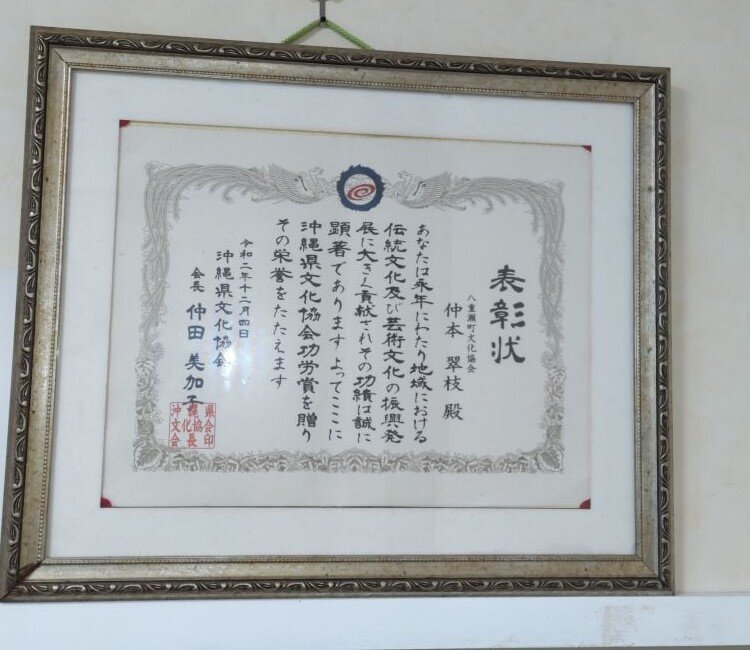 表彰状
八重瀬町文化協会
仲本 翠枝 殿
あなたは永年にわたり地域における
伝統文化及び芸術文化の振興発
展に大きく貢献されその功績は誠に
顕著であります よってここに
沖縄県文化協会功労賞を贈り
その栄誉をたたえます
令和二年十二月四日
沖縄県文化協会
会長 仲田 美加子
県合印
縄協長
沖文会